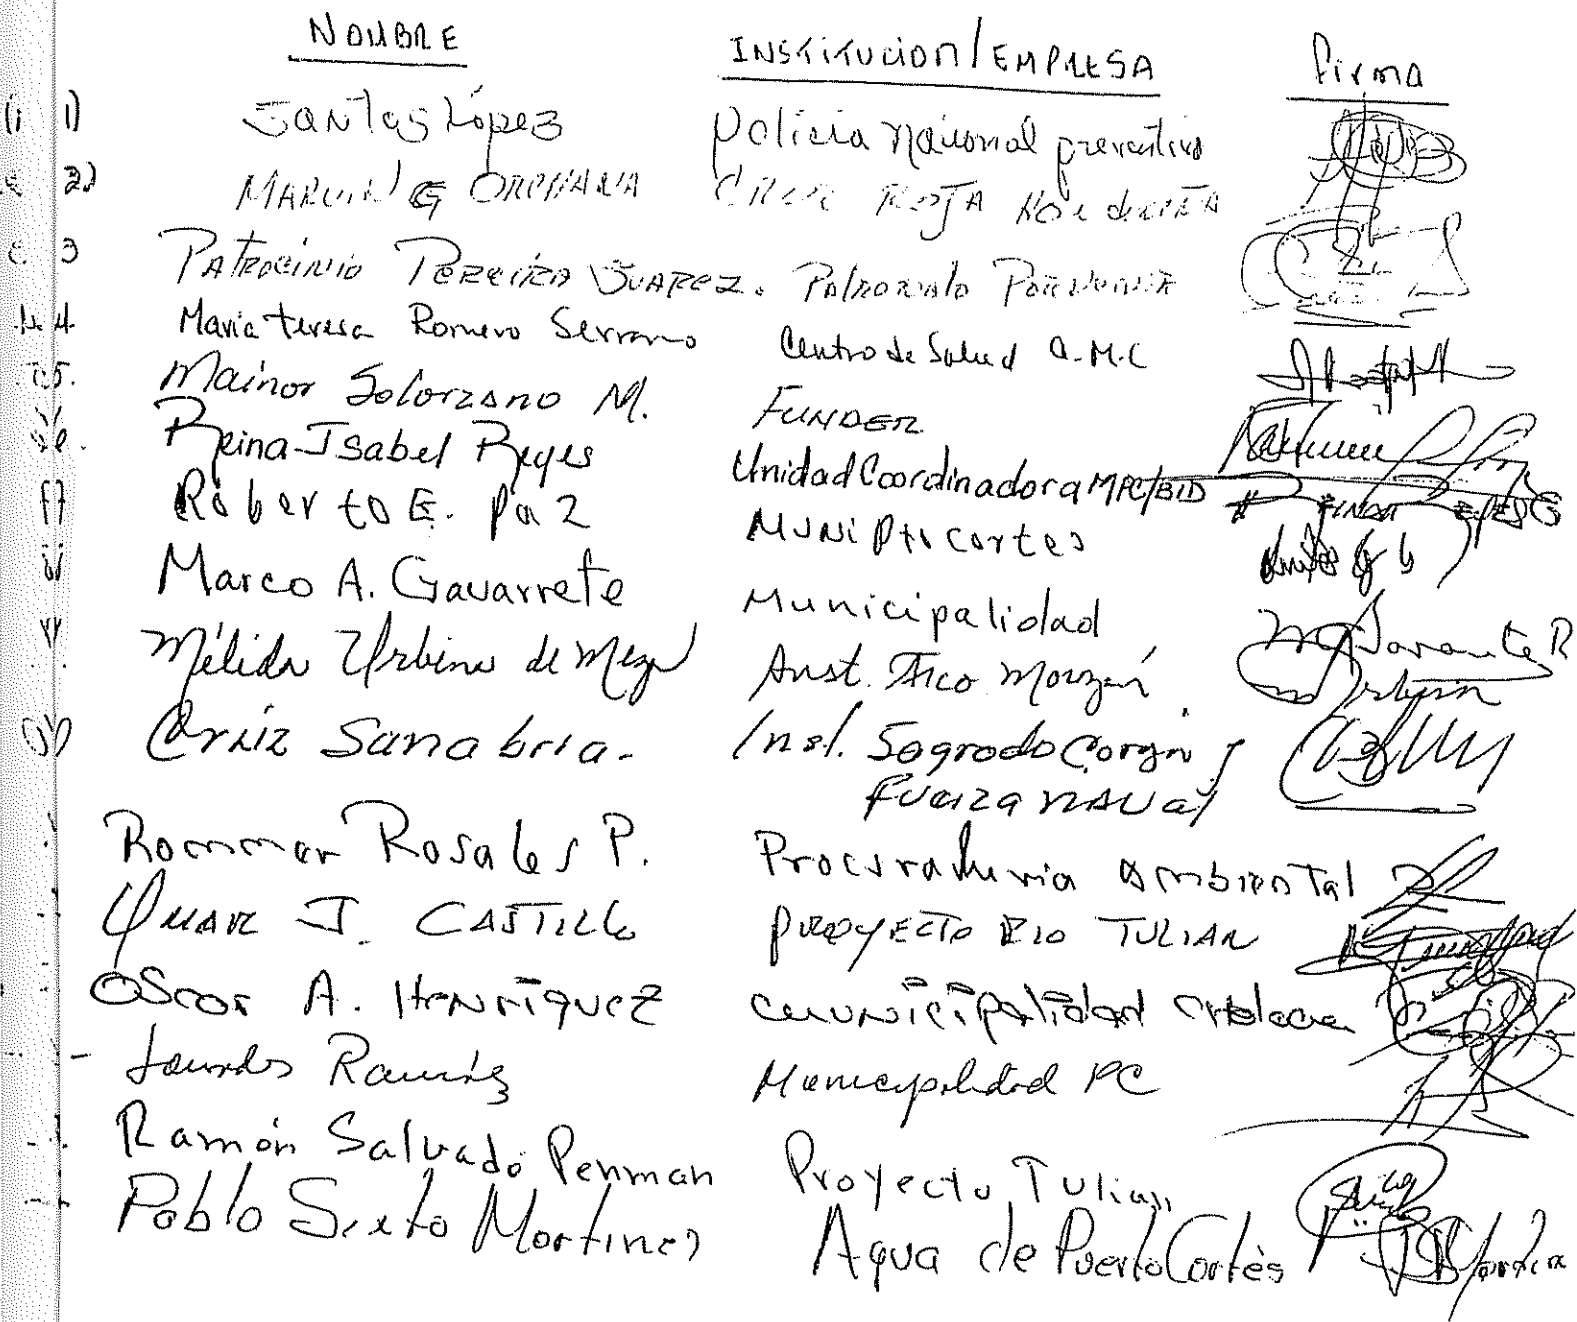 NOMBRE INSTITUCION/EMPRESA firma
1) Santos López Policia Nacional preventiva
2) MARVIN G ORELLANA CRUZ ROJA HONDUREÑA
3 PATROCINIO PEREIRA SUAREZ. Patronato PORVENIR
4. Maria teresa Romero Serrano Centro de Salud a.M.C
5. Mainor Solorzano M. FUNDER
Reina Isabel Reyes Unidad Coordinadora MPC/BID
7 Roberto E. Paz MUNi Pto cortes
Marco A. Gavarrete Municipalidad
Mélida Urbina de Meza Inst. Fco Morazán
Sanabria. Inst. Sagrado Corazn y
fuerza naval
Rommar Rosales P. Procuraduria Ambiental
OMAR J. CASTILLO PROYECTO RIO TULIAN
Oscar A. Henriquez Municipalidad
- Lourdes Ramirez Municipalidad PC
Ramón Salvado Penman Proyecto Tulian
Pablo Sixto Martinez Agua de Puerto Cortès